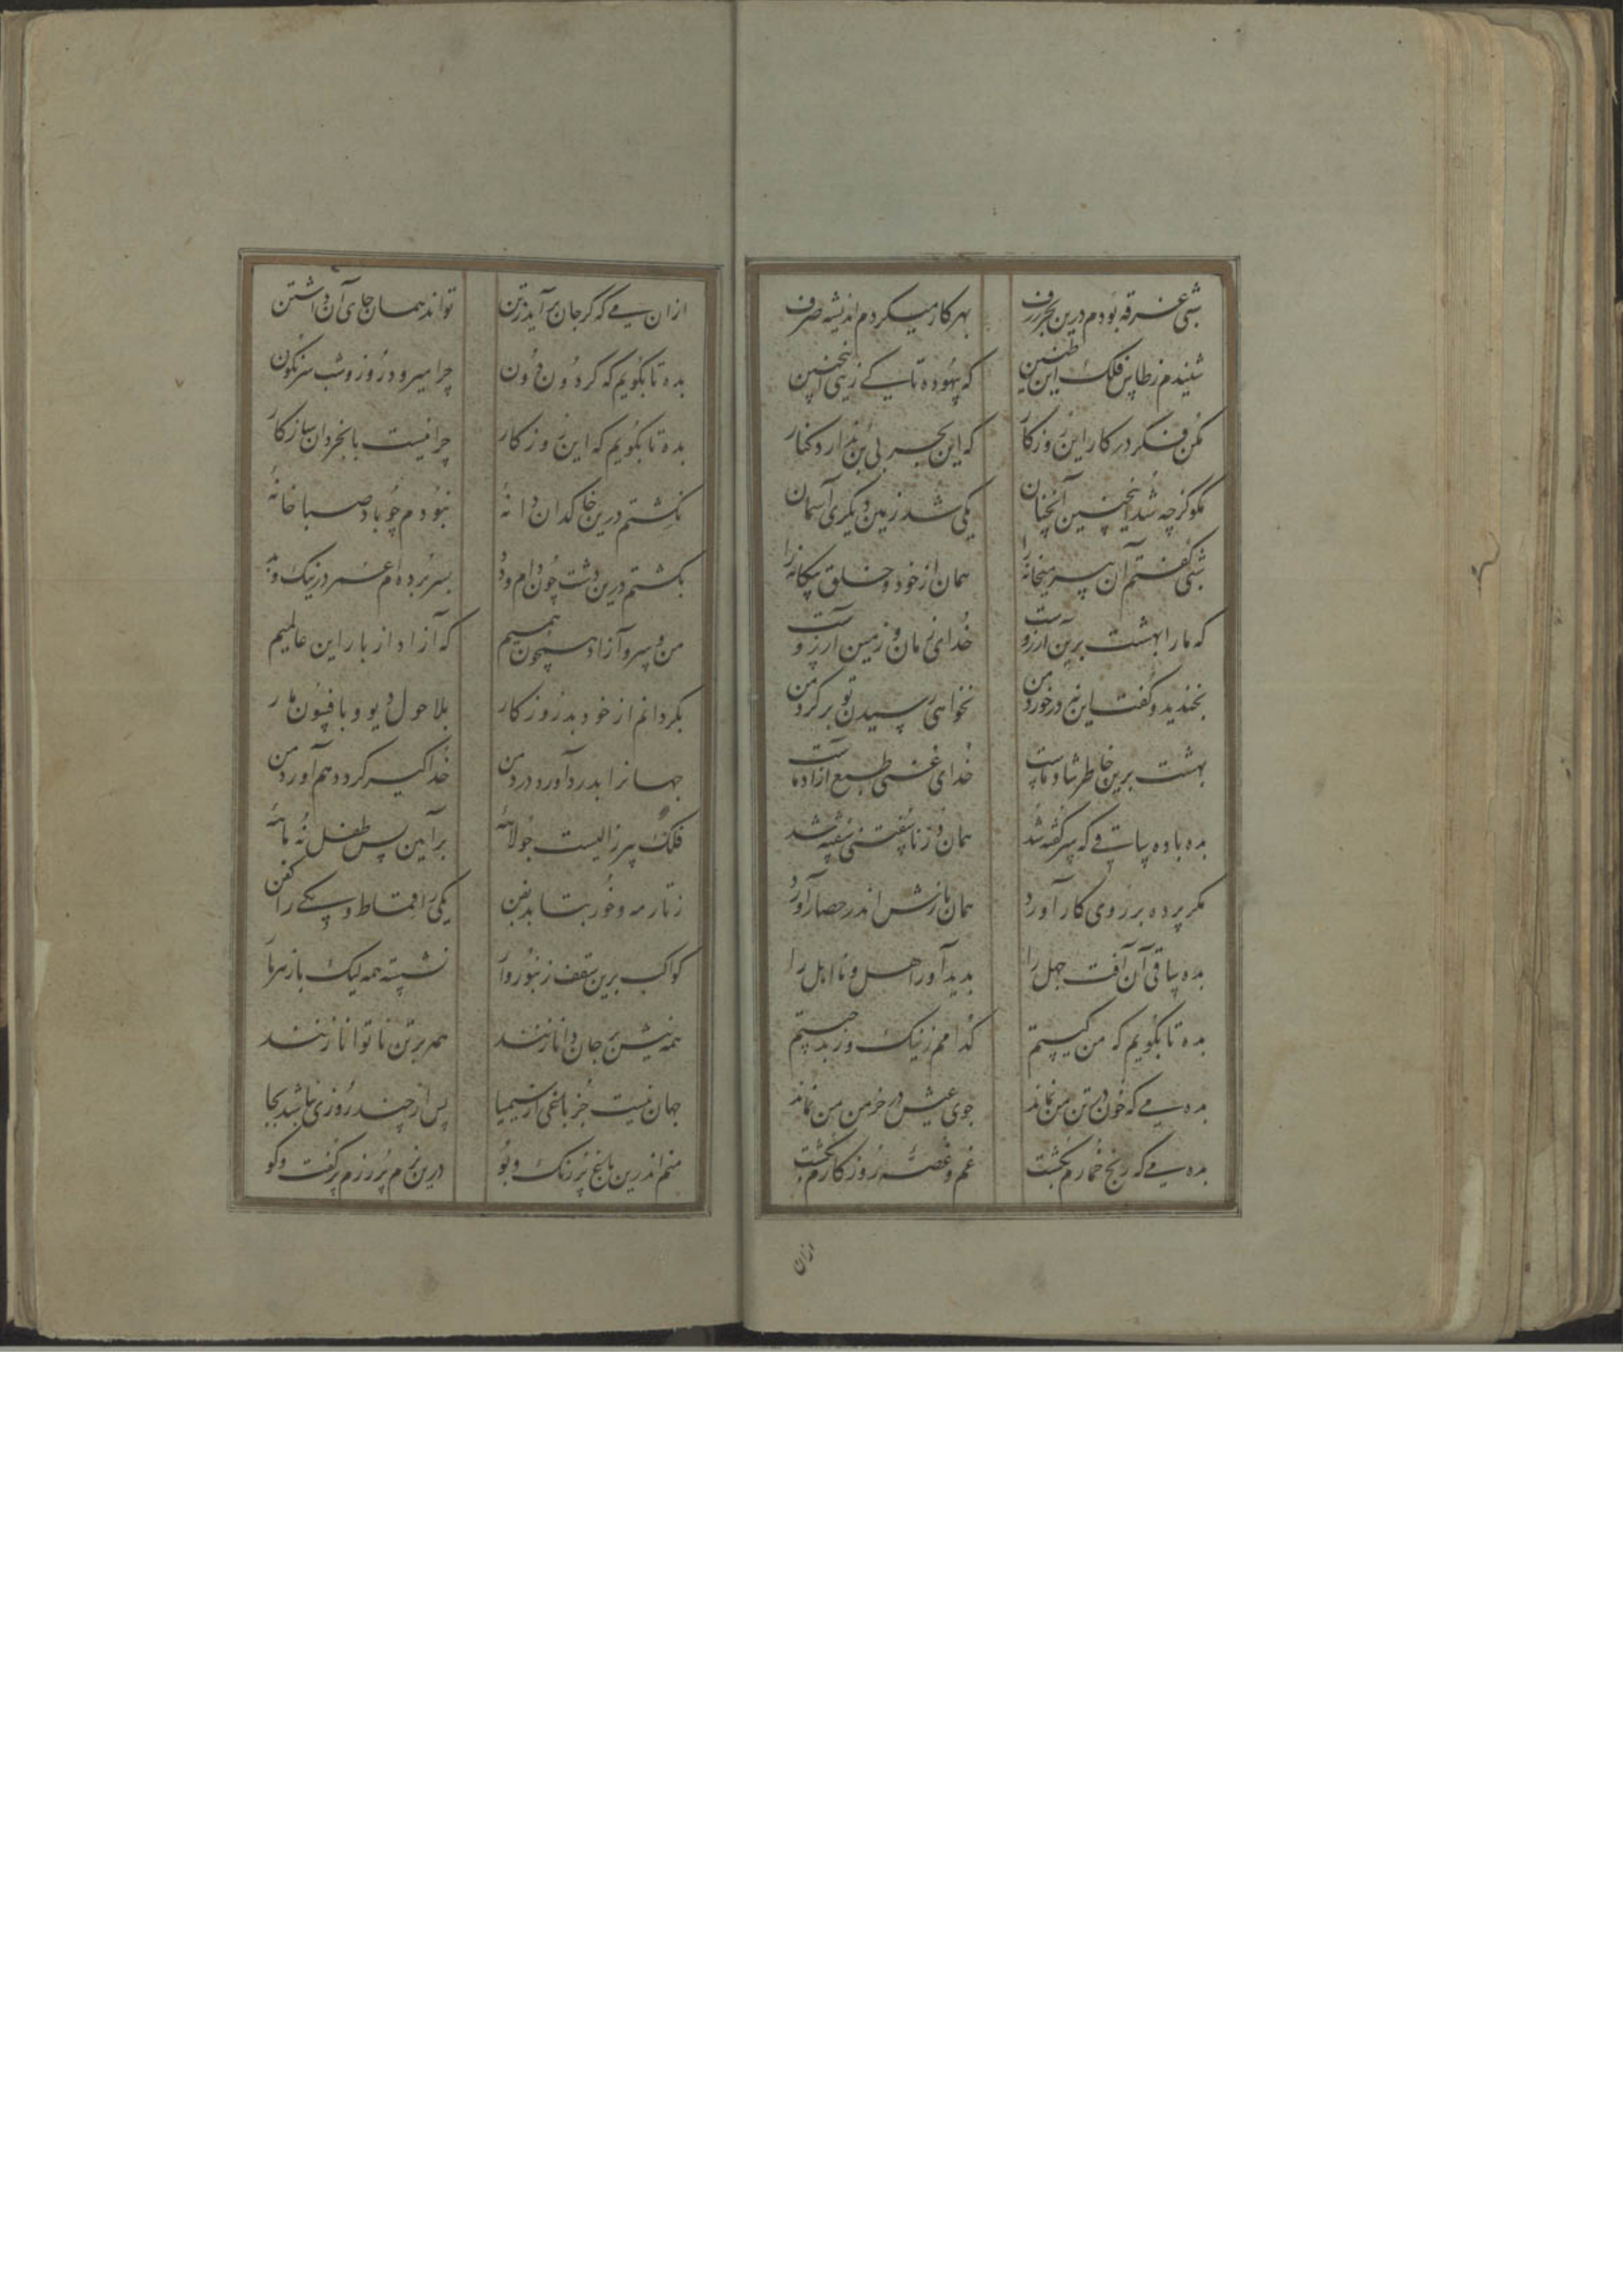 شبی غرقه بودم درین بحر ژرف
بهر کار میکردم اندیشه صرف
شنیدم ز طاس فلک این طنین
که بیهوده تا کی زنی اینچنین
مکن فکر در کار این روزکار
که این بحر بی بن ندارد کنار
مکو کز چه شد اینچنین آنچنان
یکی شد زمین و دیکری آسمان
شبی کفتم آن پیر میخانه را
همان از خود و خلق بیکانه را
که ما را بهشت برین آرزوست
خدای زمان و زمین آرزوست
بخندید و کفت این نه درخورد من
نخواهی رسیدن تو بر کرد من
بهشت برین خاطر شاد ماست
خدای غنی طبع آزاد ماست
بده باده ساقی که سر کفته شد
همان در ناسفتنی سفته شد
مکر پرده بر روی کار آورد
همان بازش اندر حصار آورد
بده ساقی آن آفت جهل را
بدید آور اهل و نااهل را
بده تا بکویم که من کیستم
کدامم ز نیک و ز بد چیستم
بده می که خون در تن من نماند
جوی عیش در خرمن من نماند
بده می که رنج خمارم بکشت
غم و غصه روزکارم بکشت
ازان
ازان می که کر جان برآید ز تن
تواند همان جای آن داشتن
بده تا بکویم که کردون دون
چرا میرود روز و شب سرنکون
بده تا بکویم که این روزکار
چرا نیست با بخردان سازکار
نکشتم درین خاکدان دانهٔ
نبودم چو باد صبا خانهٔ
بکشتم درین دشت چون دام و دد
بسر برده ام عمر در نیک و بد
من و سرو آزاد همچون همیم
که آزاد از بار این عالمیم
بکردانم از خود بد روزکار
بلاحول دیو و بافسون مار
جهانرا بدرد آورد درد من
خدا کیر کردد هم آورد من
فلک پیر زالیست جولاهه
بر آیین پس طفل نه ماهه
ز تار مه و خور بتابد بفن
یکی را قماط و یکی را کفن
کواکب برین سقف زنبوروار
نشسته همه لیک با زهر مار
همه نیش بر جان دانا زنند
همه بر تن ناتوانا زنند
جهان نیست جز باغی از سیمیا
پس از چند روزی نباشد بجا
منم اندرین باغ پر رنک و بو
درین بزم پر رزم پر کفت و کو